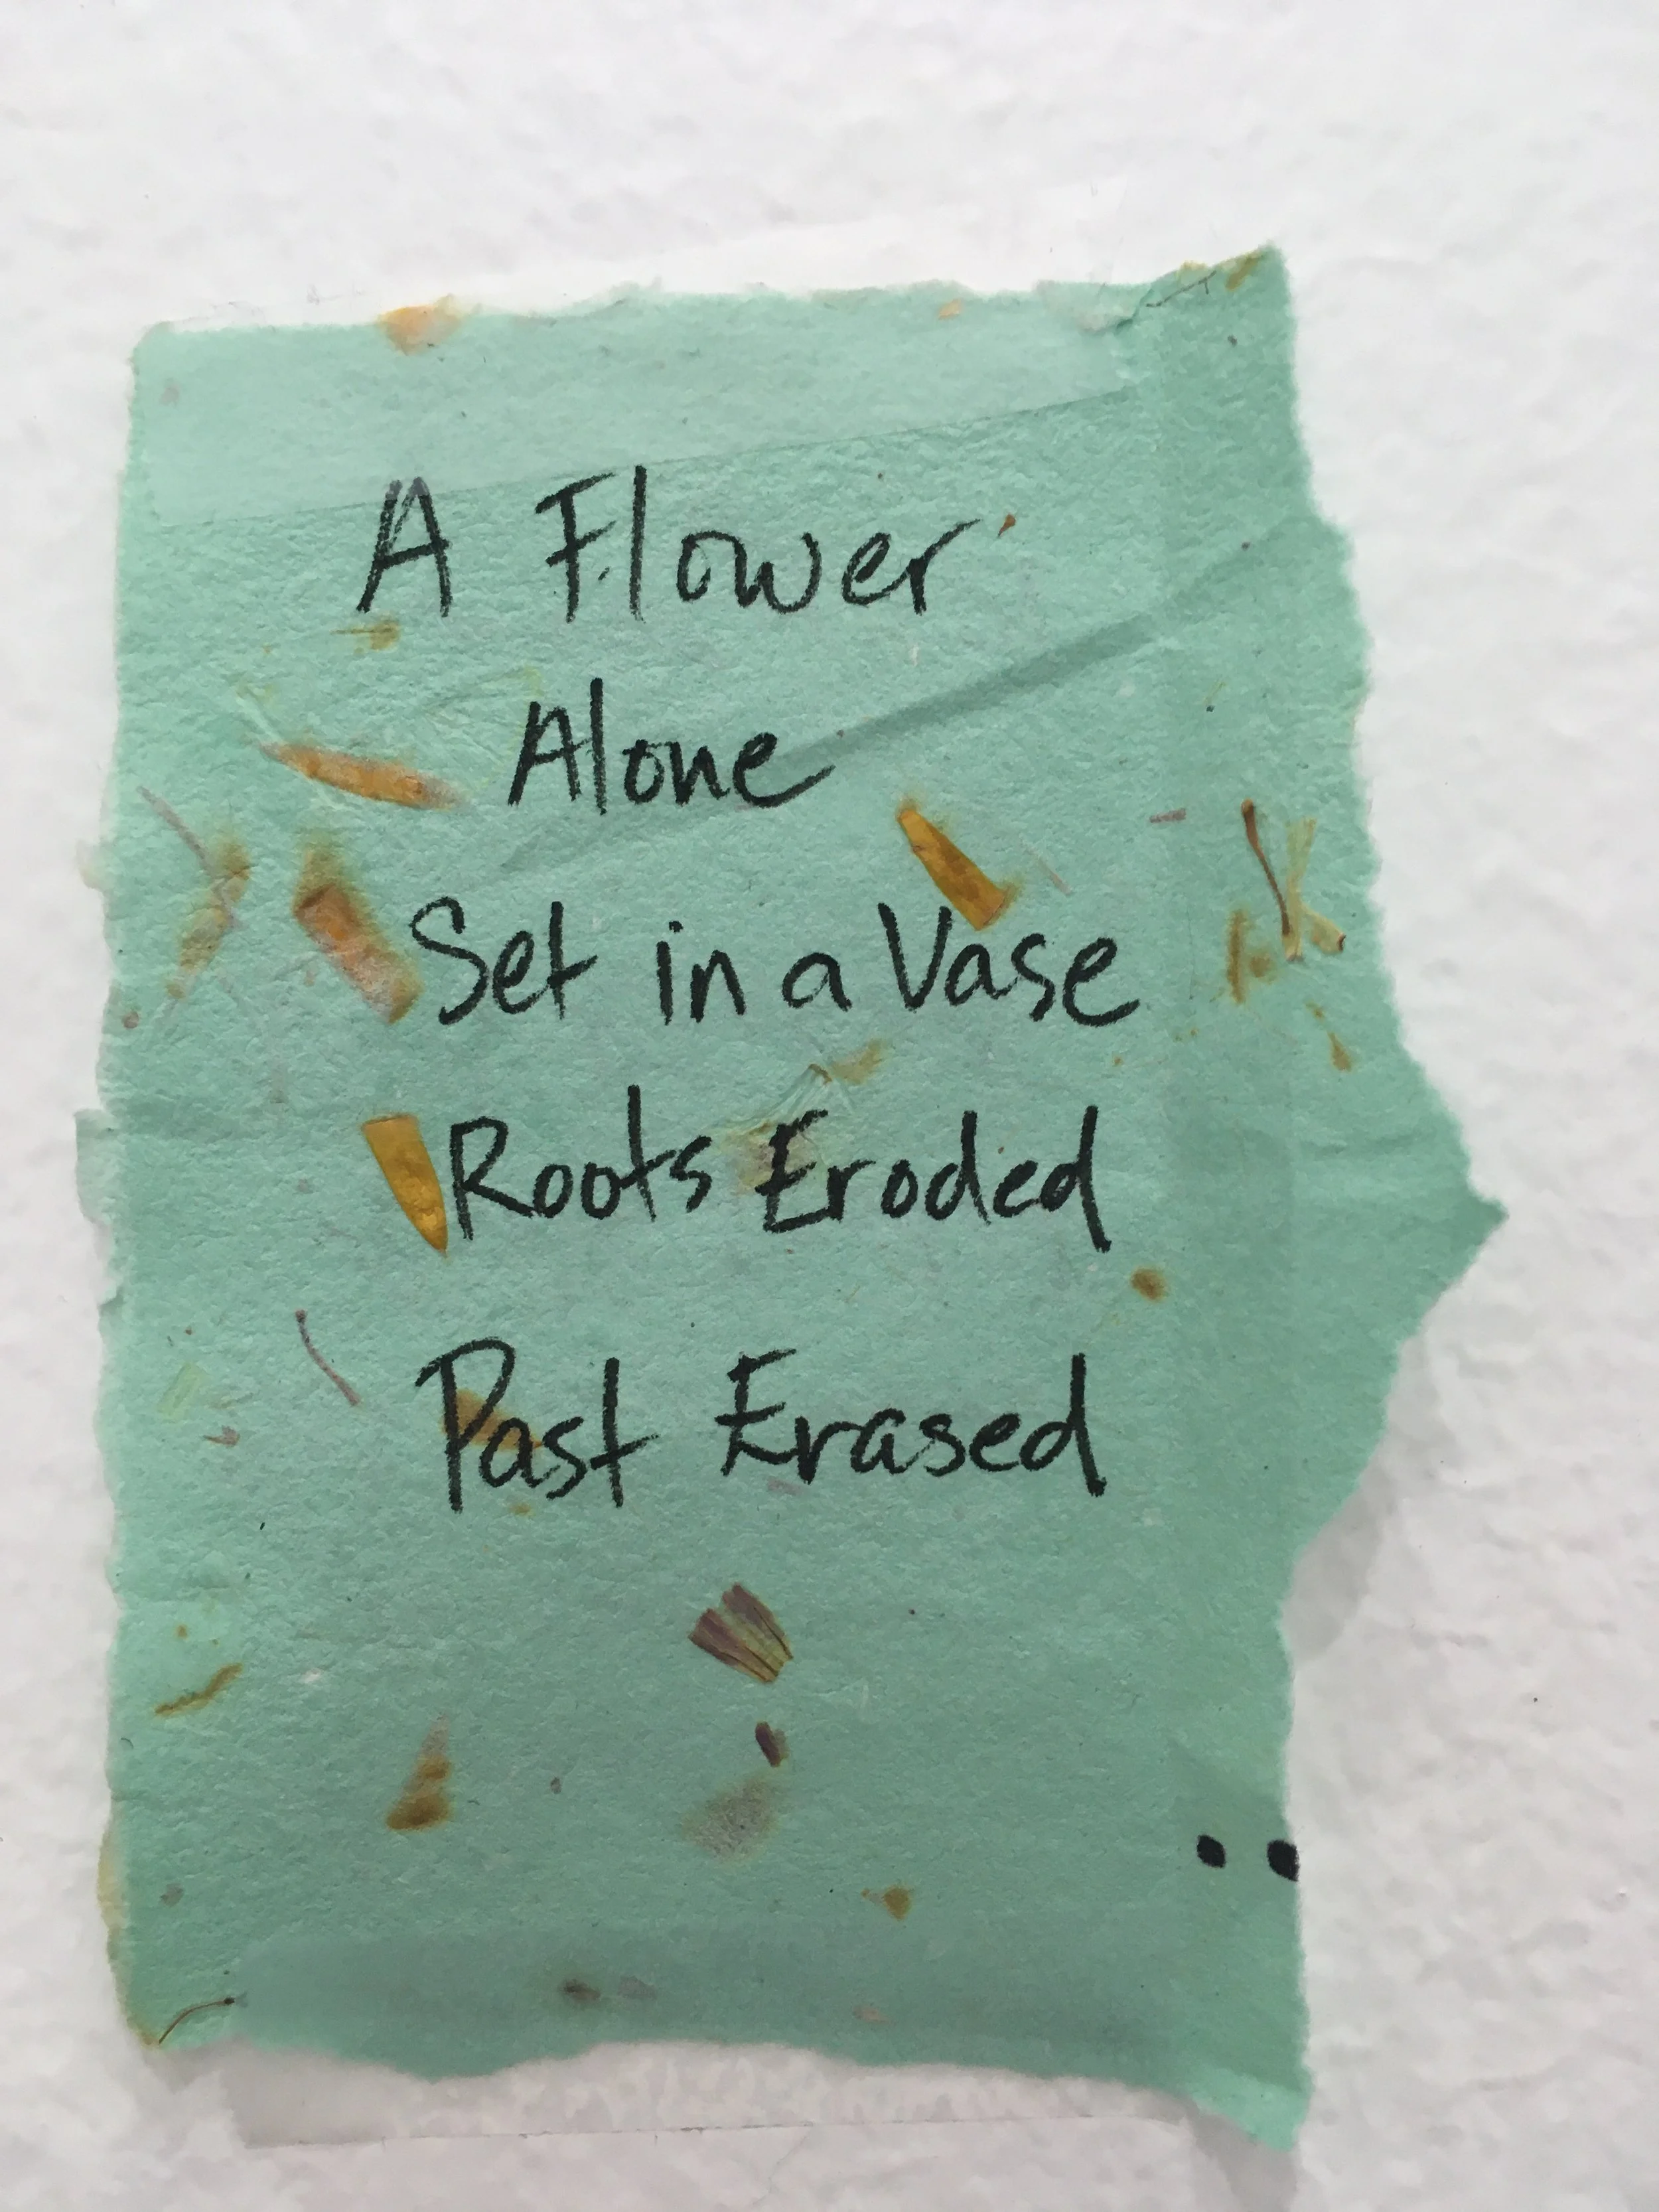 A Flower
Alone
Set in a Vase
Roots Eroded
Past Erased